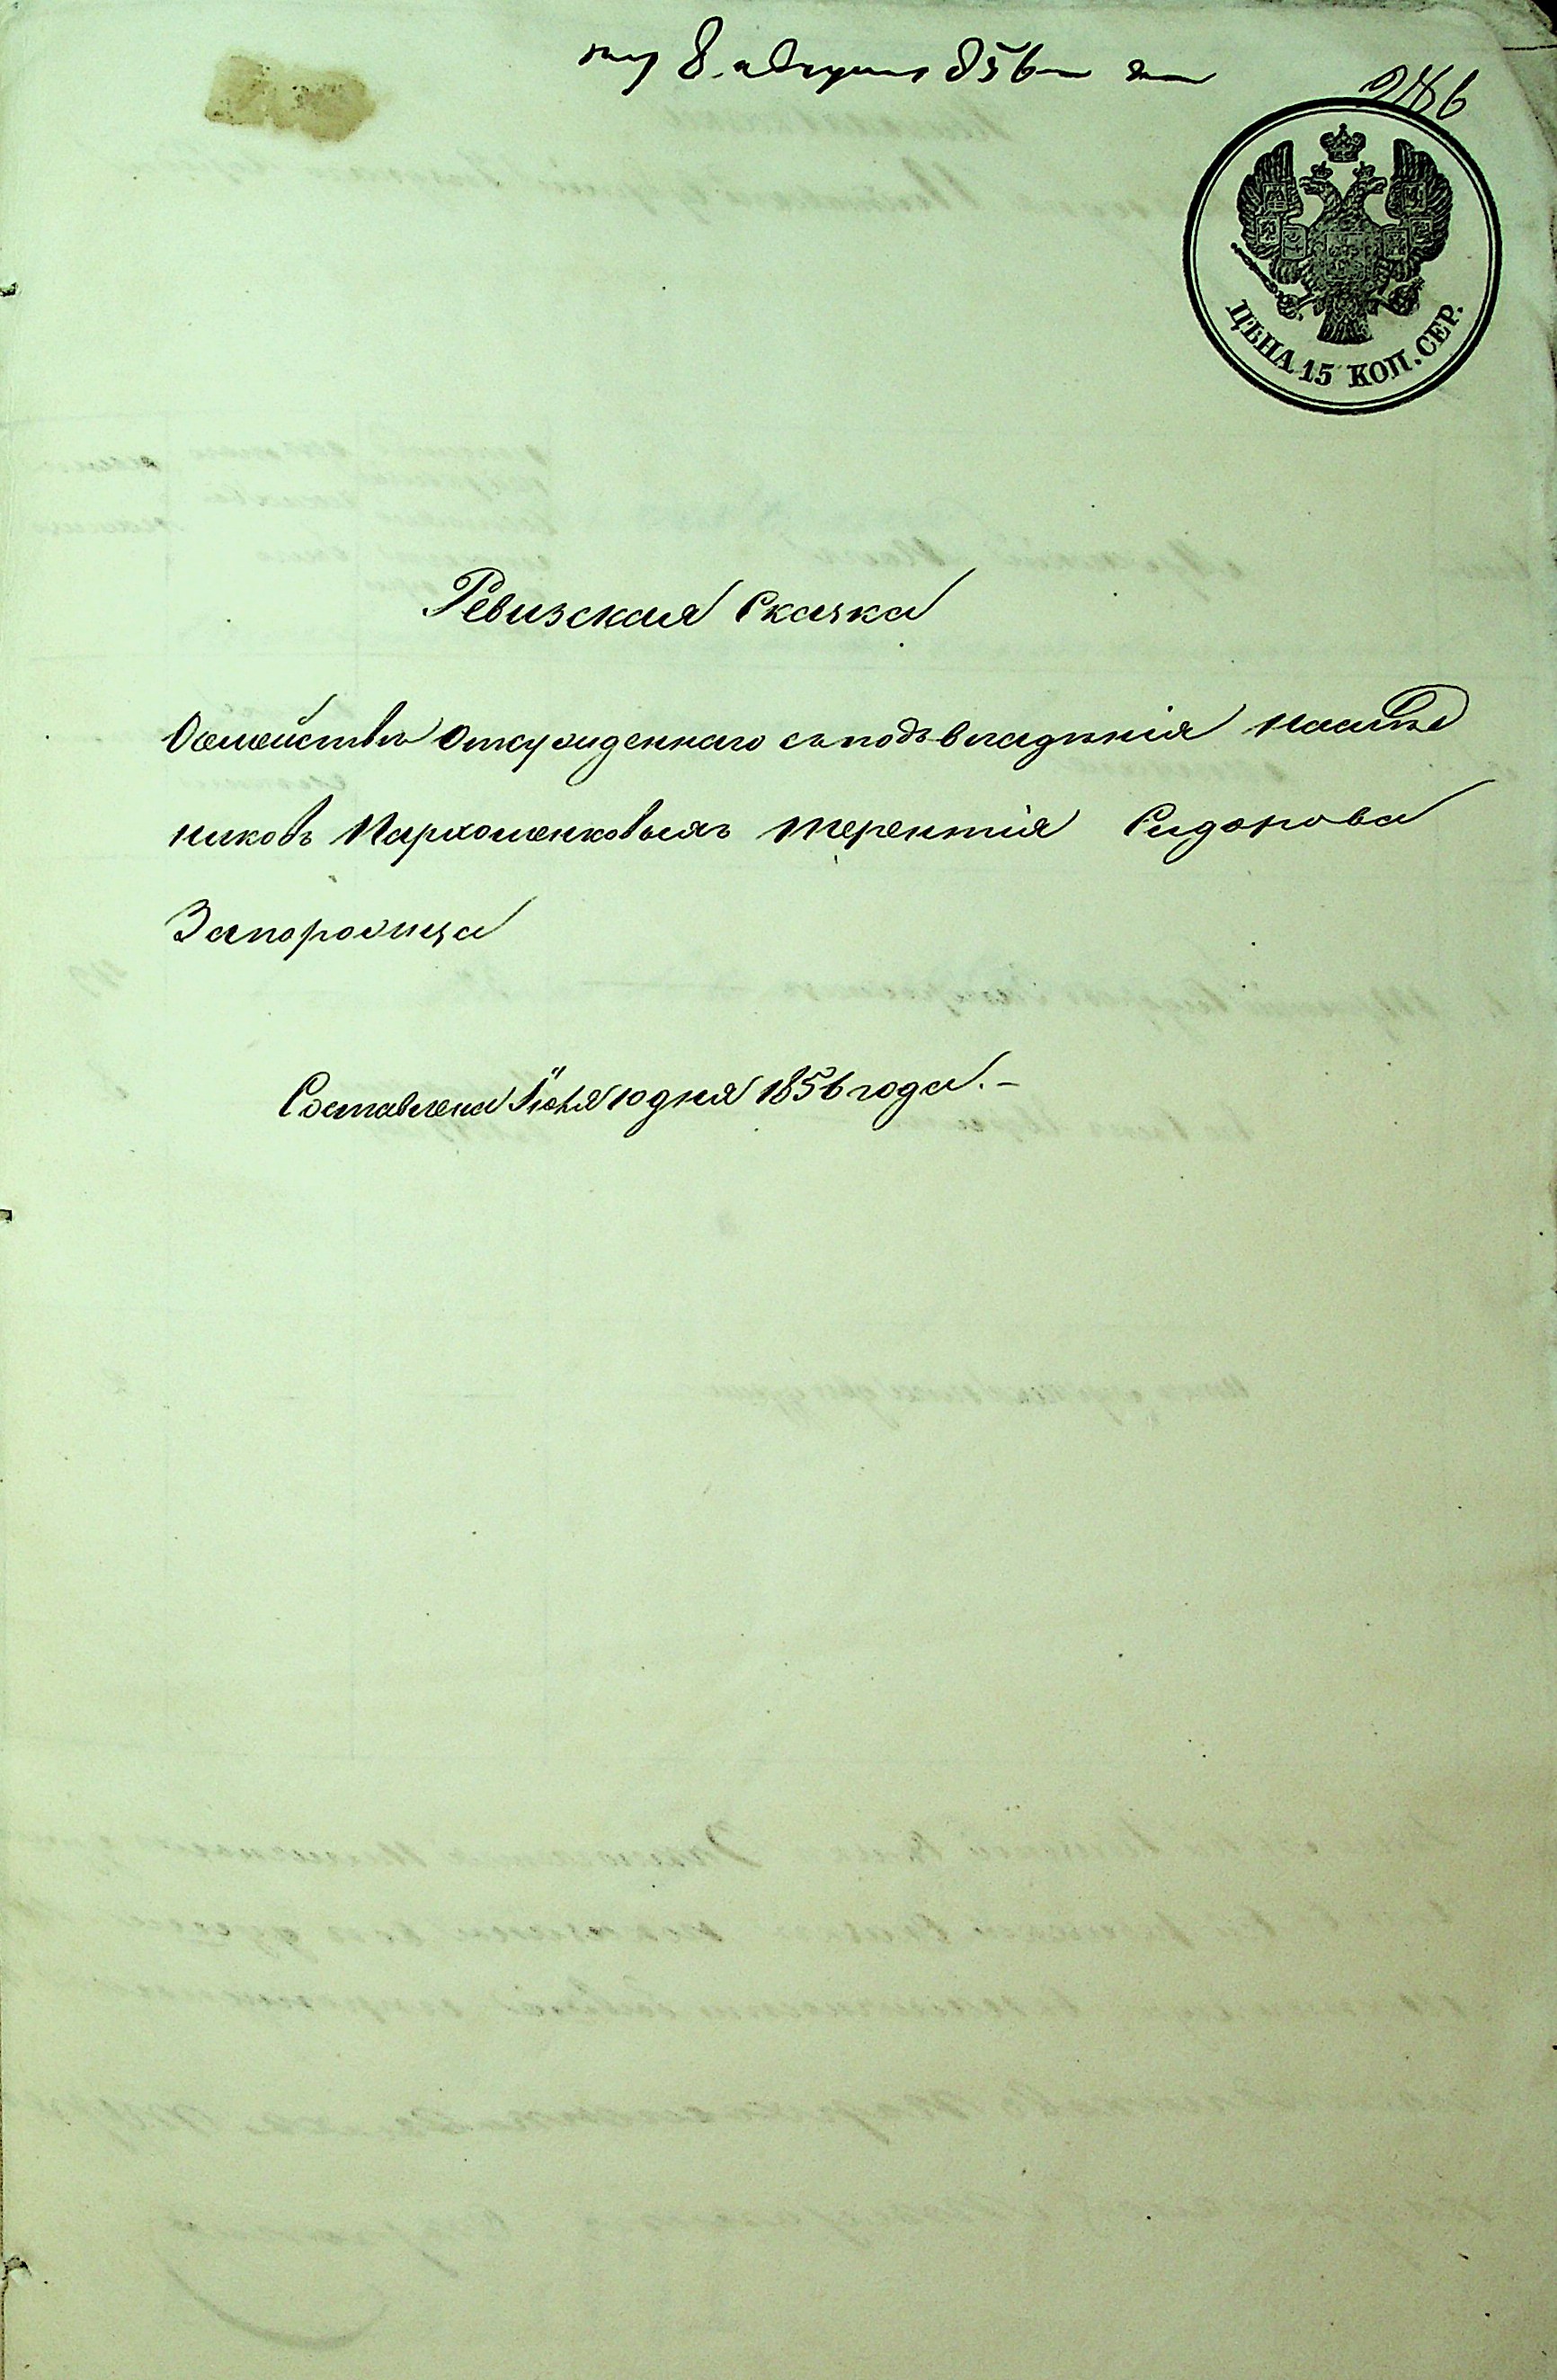 8 августа 856
ЦѢНА 15 КОП. СЕР.
Ревизская Сказка
О семействѣ отсужденнаго съ подъ владѣнія наслѣд
никовъ Пархоменковыхъ Терентія Сидорова
Запорожца
Составлена Іюня 10 дня 1856 года.–